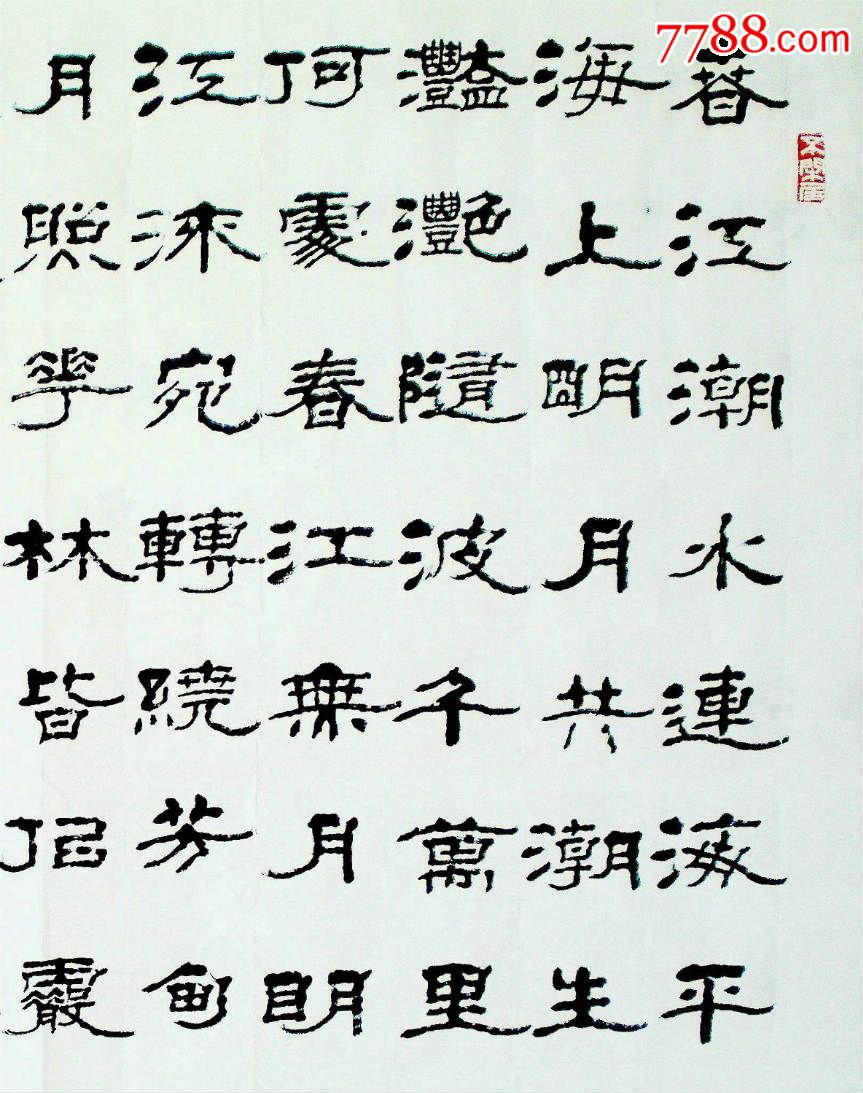 7788.com
春江潮水連海平
海上明月共潮生
灩灧隨波千萬里
何處春江無月明
江流宛轉繞芳甸
月照花林皆似霰